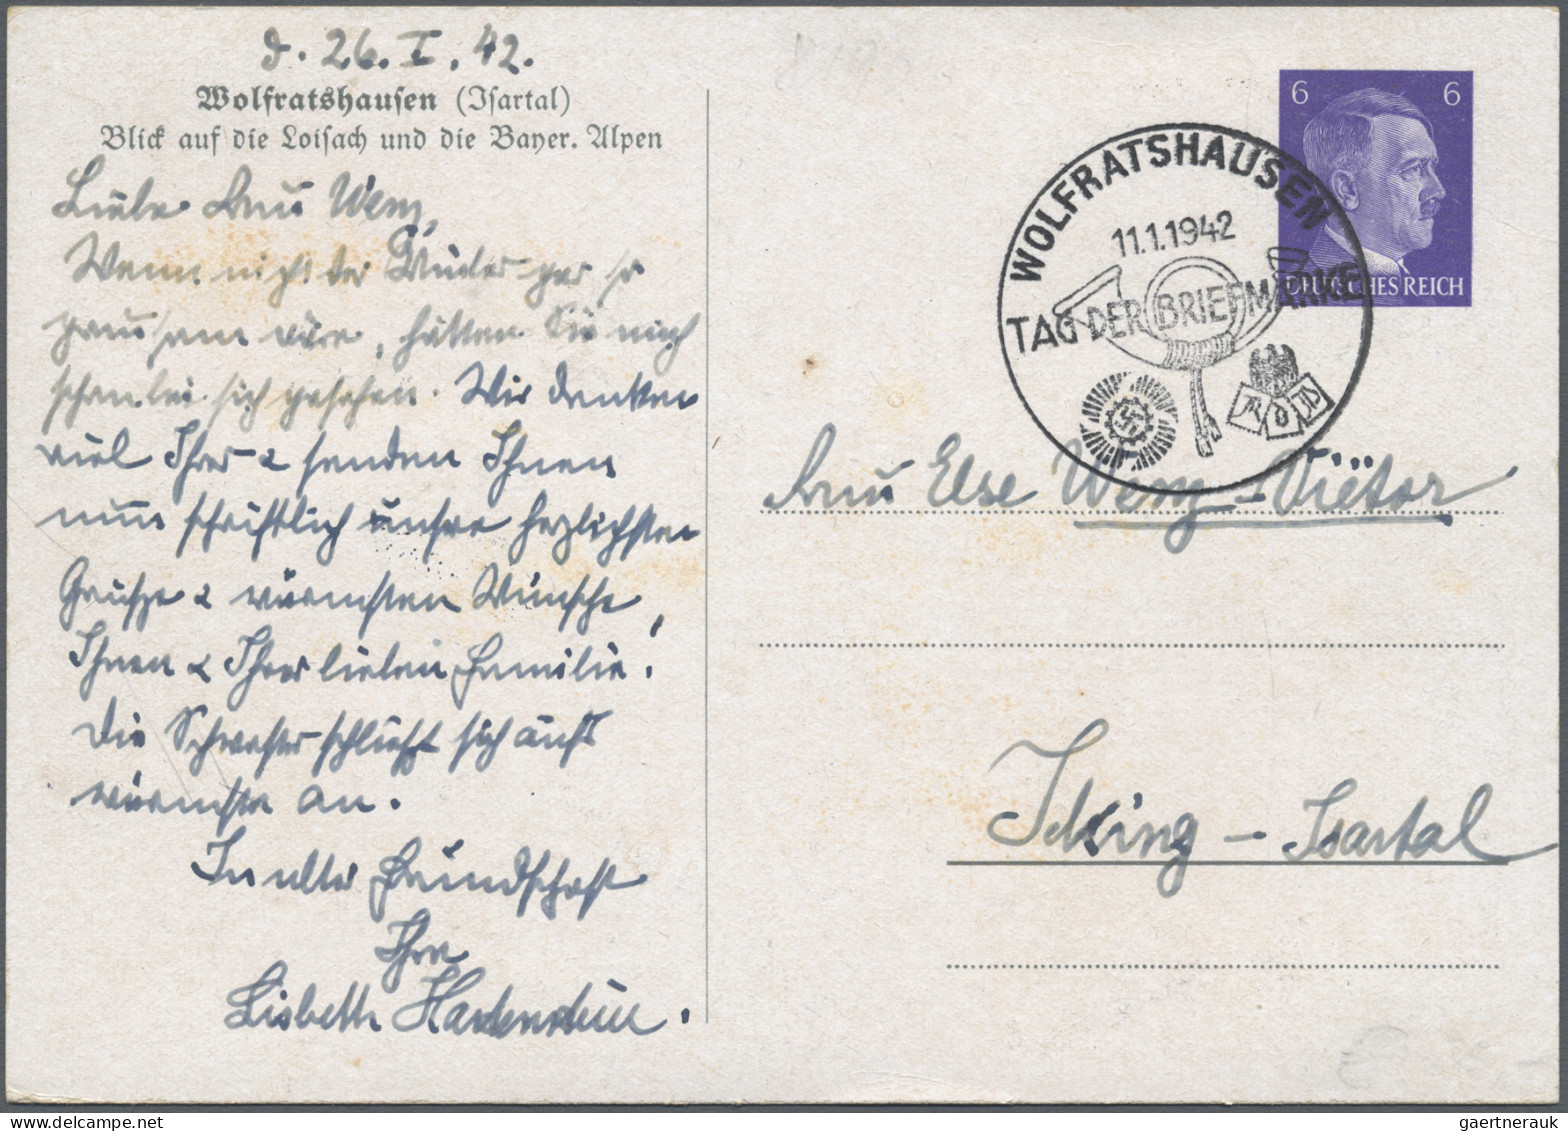 d. 26. I. 42.
Wolfratshausen (Isartal)
Blick auf die Loisach und die Bayer. Alpen
Liebe Frau Wenz,
Wenn nicht der Winter gar so
grausam wäre, hätten Sie mich
schon bei sich gesehen. Wir denken
viel Ihrer & senden Ihnen
nun schriftlich unsere herzlichsten
Grüsze & wärmsten Wünsche,
Ihnen & Ihrer lieben Familie.
Die Schwester schlieszt sich aufs
wärmste an.
In alter Freundschaft
Ihre
Lisbeth
6 6
DEUTSCHES REICH
WOLFRATSHAUSEN
11.1.1942
TAG DER BRIEFMARKE
Frau Else Wenz-Viëtor
Icking - Isartal
gaertnerauk